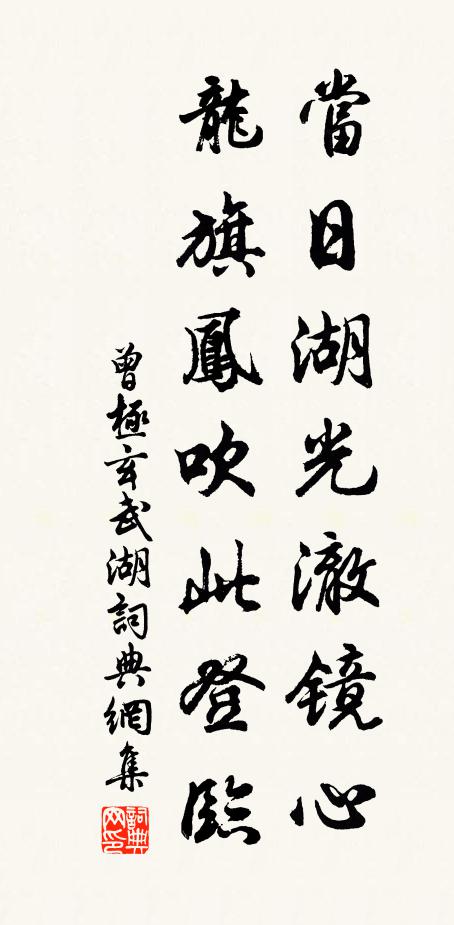 當日湖光澈镜心
龍旗鳳吹此登臨
曾極玄武湖詞典網集
詞典网印